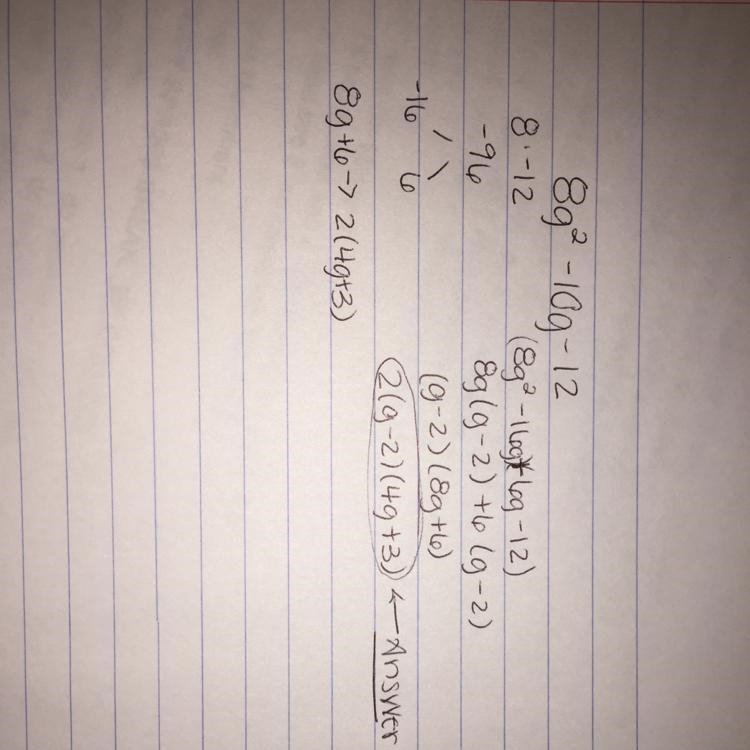 8g² - 10g - 12
8 · -12
-96
-16 6
8g+6 → 2(4g+3)
(8g² - 16g)(+6g - 12)
8g(g-2) + 6(g-2)
(g-2)(8g+6)
2(g-2)(4g+3) ← Answer